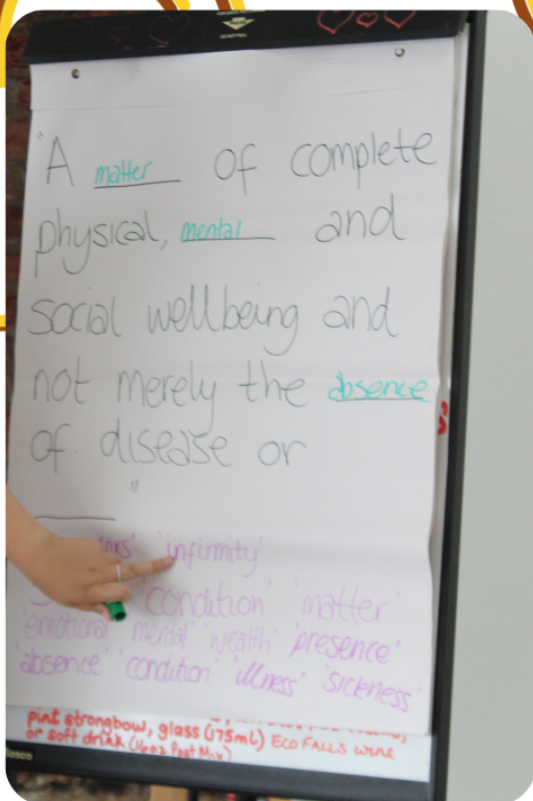 "A matter of complete
physical, mental and
social wellbeing and
not merely the absence
of disease or
"
'infirmity'
'condition' 'matter'
'emotional' 'mental' 'wealth' 'presence'
'absence' 'condition' 'illness' 'sickness'
pint strongbow, glass (175ml) ECO FALLS WINE
or soft drink (16oz Post Mix)